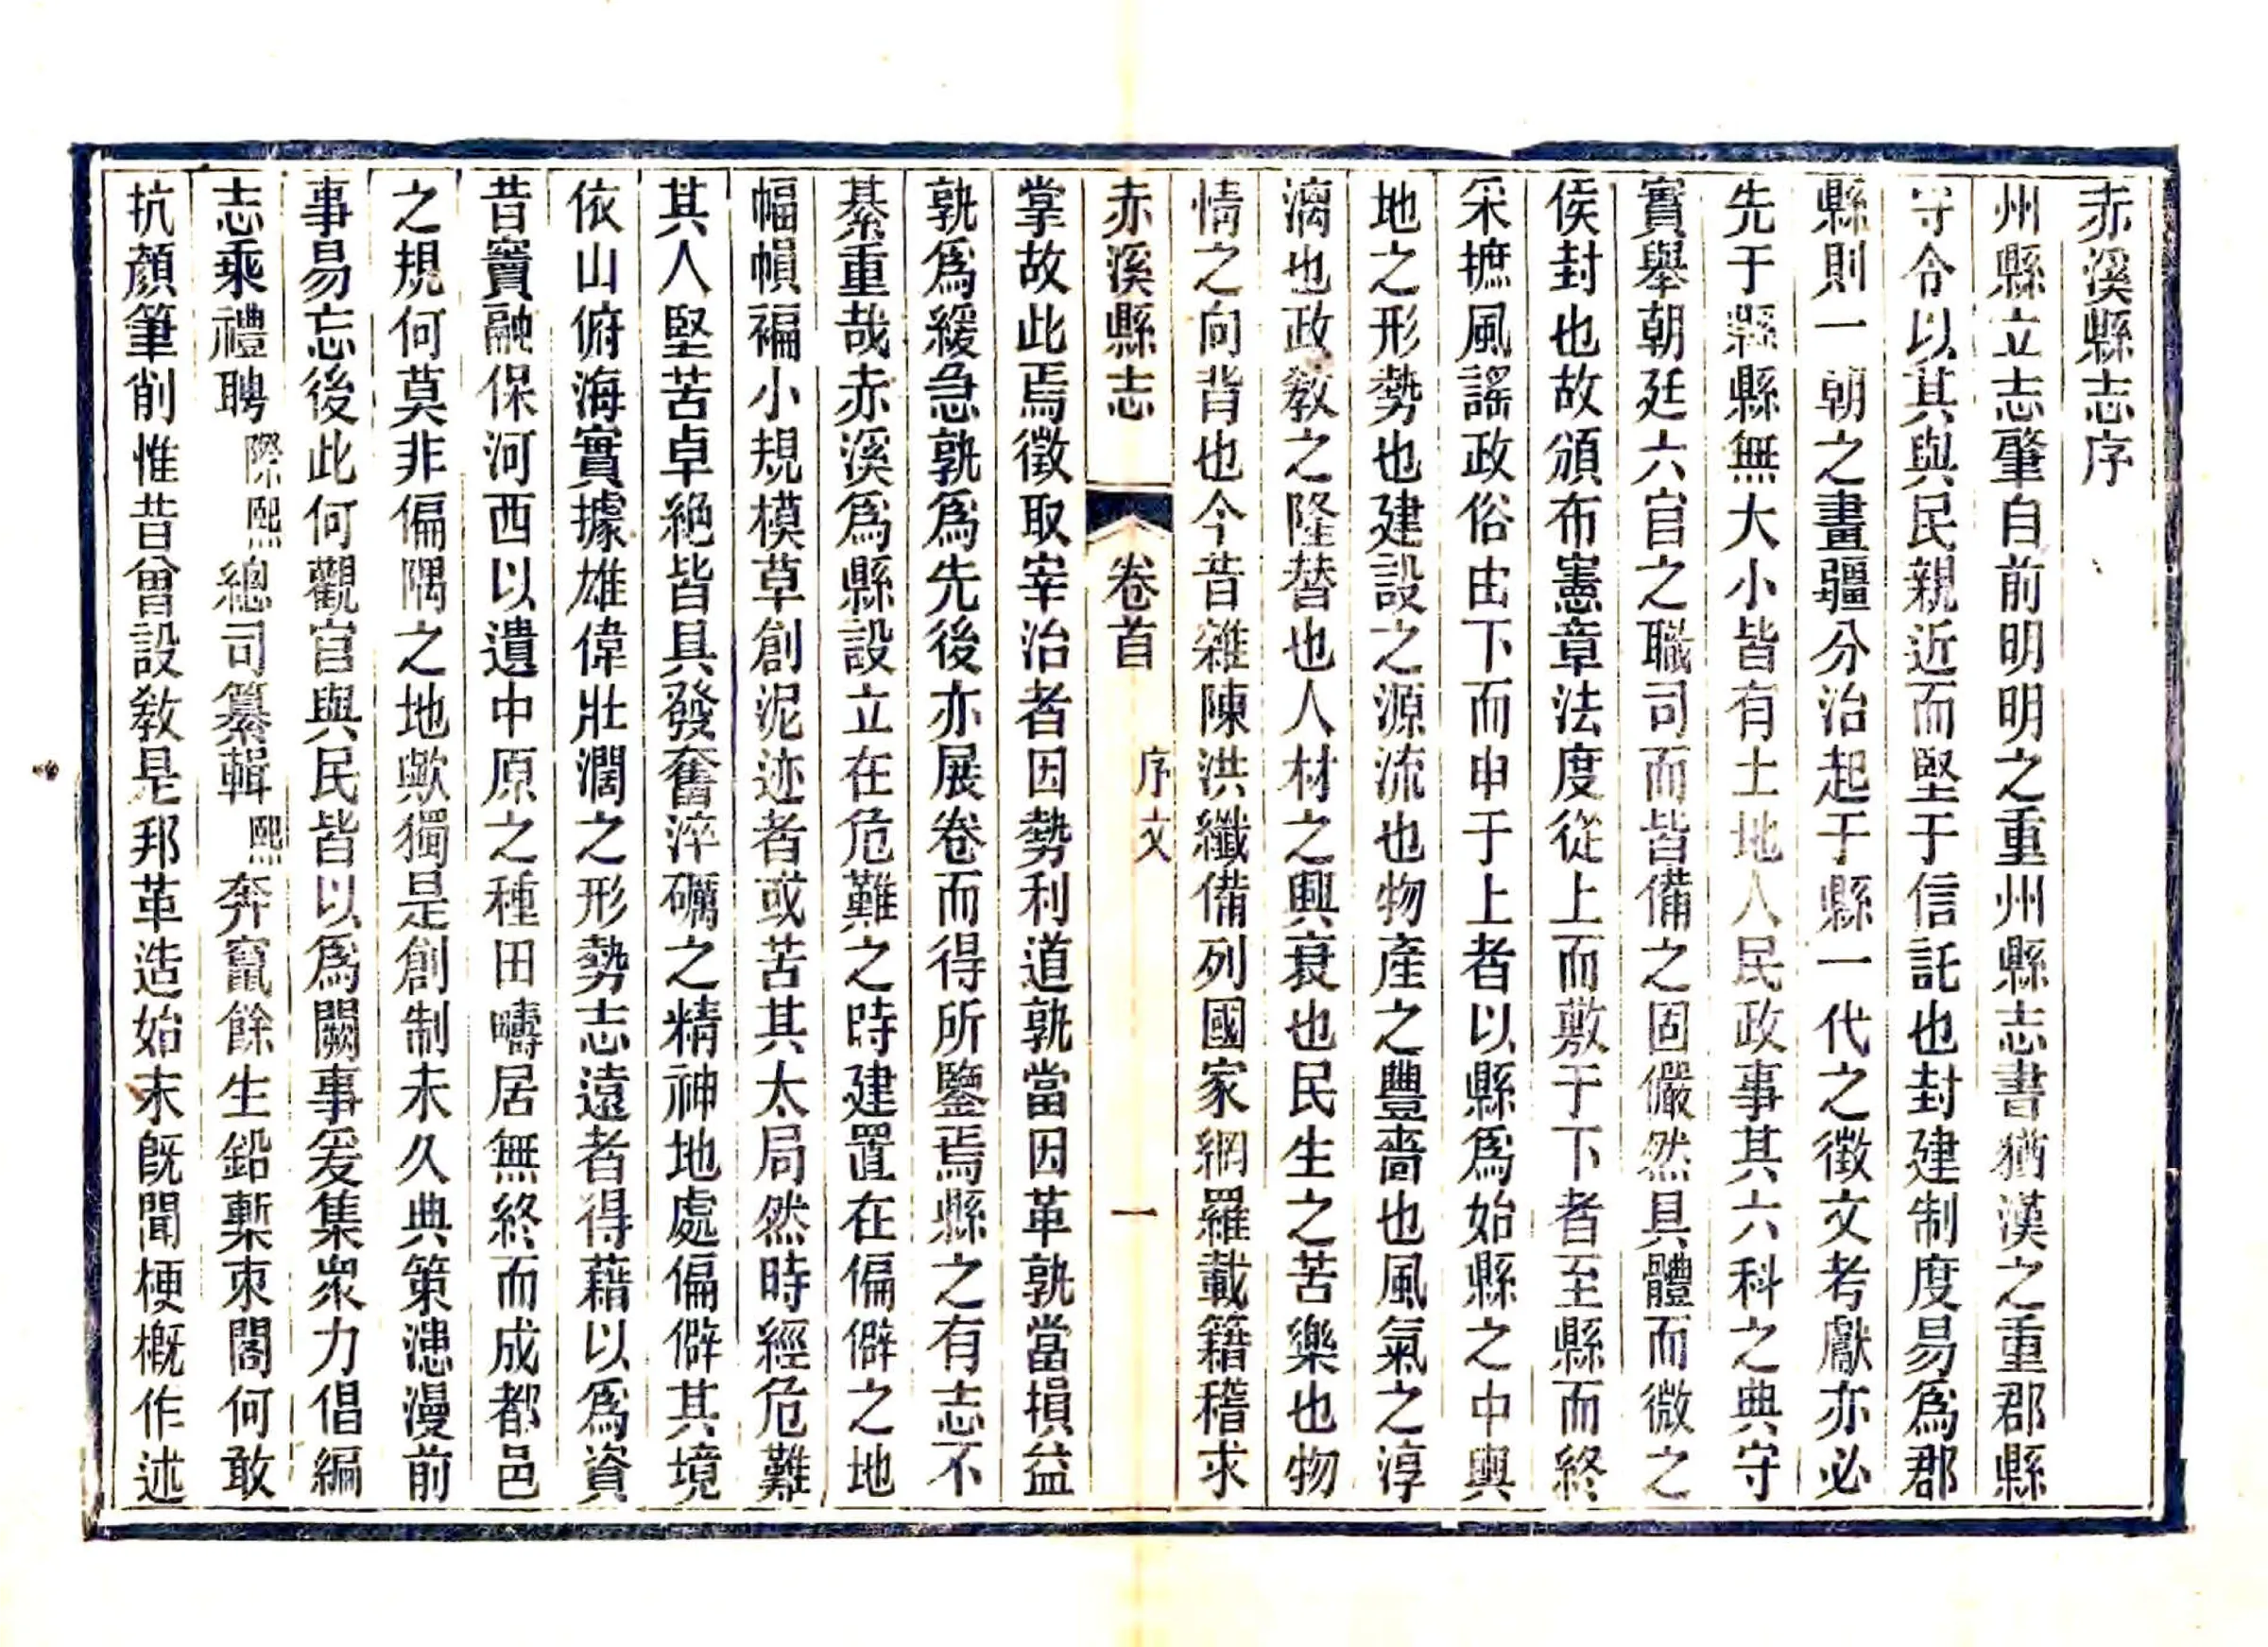 赤溪縣志序
州縣立志肇自前明明之重州縣志書猶漢之重郡縣
守令以其與民親近而堅于信託也封建制度易爲郡
縣則一朝之畫疆分治起于縣一代之徵文考獻亦必
先于縣縣無大小皆有土地人民政事其六科之典守
實舉朝廷六官之職司而皆備之固儼然具體而微之
侯封也故頒布憲章法度從上而敷于下者至縣而終
采摭風謠政俗由下而申于上者以縣爲始縣之中輿
地之形勢也建設之源流也物產之豐嗇也風氣之淳
漓也政敎之隆替也人材之興衰也民生之苦樂也物
情之向背也今昔雜陳洪纖備列國家網羅載籍稽求
赤溪縣志 卷首 序文 一
掌故此焉徵取宰治者因勢利道孰當因革孰當損益
孰爲緩急孰爲先後亦展卷而得所鑒焉縣之有志不
綦重哉赤溪爲縣設立在危難之時建置在偏僻之地
幅幀褊小規模草創泥迹者或苦其太局然時經危難
其人堅苦卓絕皆具發奮淬礪之精神地處偏僻其境
依山俯海實據雄偉壯濶之形勢志遠者得藉以爲資
昔竇融保河西以遺中原之種田疇居無終而成都邑
之規何莫非偏隅之地歟獨是創制未久典策漶漫前
事易忘後此何觀官與民皆以爲闕事爰集衆力倡編
志乘禮聘際熙總司纂輯熙奔竄餘生鉛槧束閣何敢
抗顏筆削惟昔曾設敎是邦革造始末旣聞梗槪作述